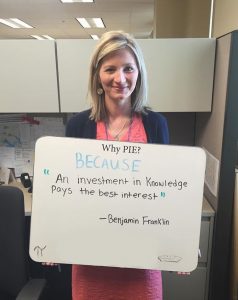 Why PIE?
BECAUSE
"An investment in Knowledge
pays the best interest"
—Benjamin Franklin
π